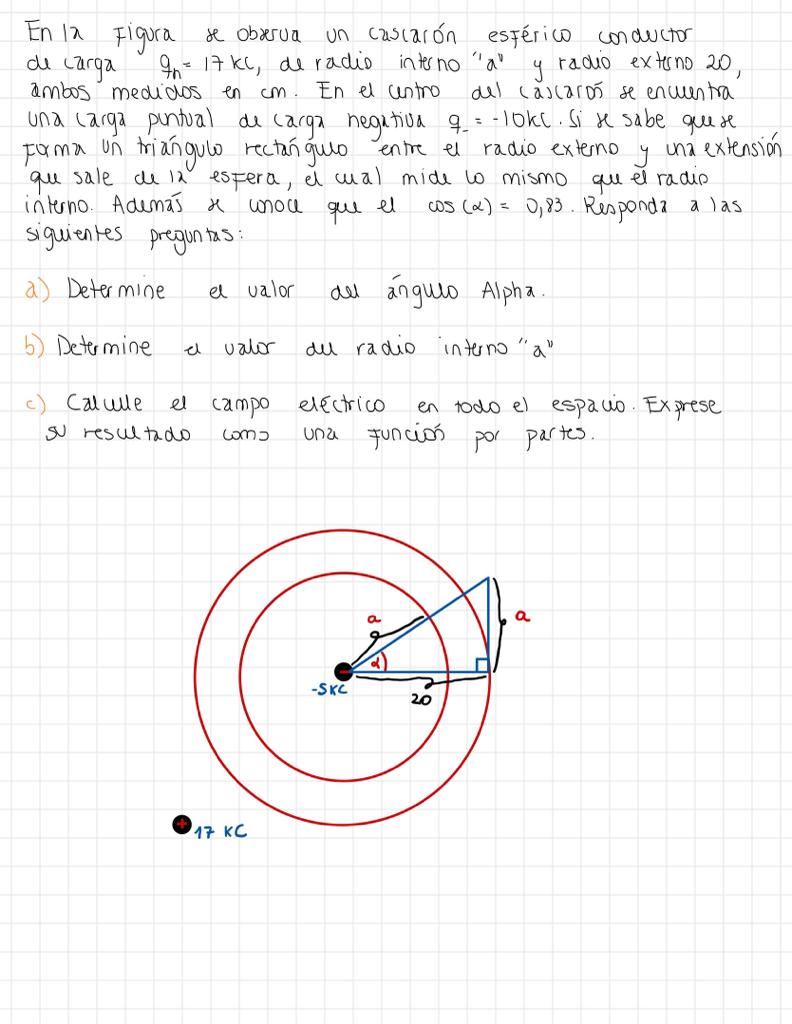 En la Figura se observa un cascarón esférico conductor
de carga qₙ = 17 KC, de radio interno "a" y radio externo 20,
ambos medidos en cm. En el centro del cascarós se encuentra
una carga puntual de carga negativa q_ = -10KC. Si se sabe que se
forma un triángulo rectángulo entre el radio externo y una extensión
que sale de la esfera, el cual mide lo mismo que el radio
interno. Además se conoce que el cos(α) = 0,83. Responda a las
siguientes preguntas:
a) Determine el valor del ángulo Alpha.
b) Determine el valor del radio interno "a"
c) Calcule el campo eléctrico en todo el espacio. Exprese
su resultado como una función por partes.
a
a
α
-5KC
20
+ 17 KC